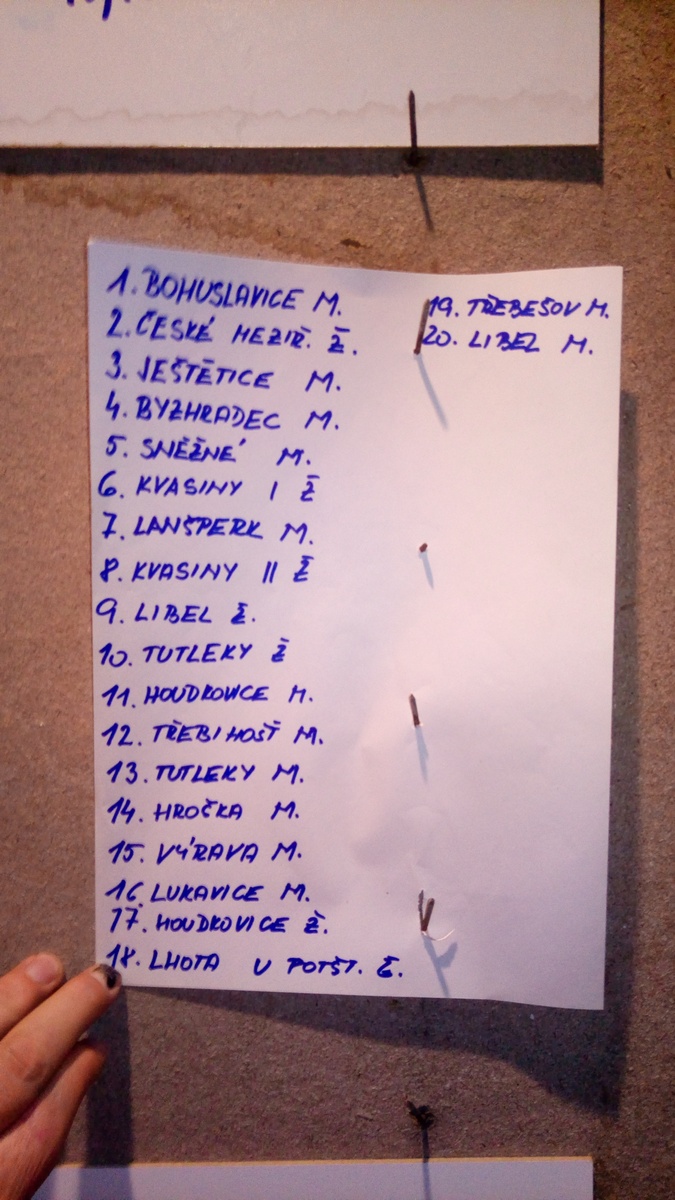 1. BOHUSLAVICE M.
2. ČESKÉ MEZIŘ. Ž.
3. JEŠTĚTICE M.
4. BYZHRADEC M.
5. SNĚŽNÉ M.
6. KVASINY I Ž
7. LANŠPERK M.
8. KVASINY II Ž
9. LIBEL Ž.
10. TUTLEKY Ž
11. HOUDKOVICE M.
12. TŘEBIHOŠŤ M.
13. TUTLEKY M.
14. HROČKA M.
15. VÝRAVA M.
16. LUKAVICE M.
17. HOUDKOVICE Ž.
18. LHOTA U POTŠT. Ž.
19. TŘEBEŠOV M.
20. LIBEL M.